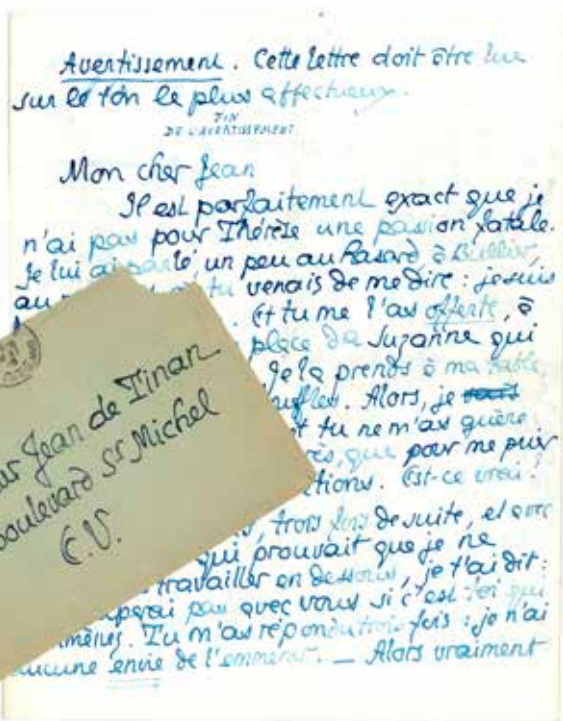 Avertissement. Cette lettre doit être lue
sur le ton le plus affectueux.
FIN
DE L'AVERTISSEMENT.
Mon cher Jean
Il est parfaitement exact que je
n'ai pas pour Thérèse une passion fatale.
Je lui ai parlé, un peu au hasard à Bullier,
au tu venais de me dire : je suis
. Et tu me l'as offerte, à
place de Suzanne qui
Je la prends à ma table
. Alors, je
tu ne m'as guère
, que pour me
tions. Est-ce vrai ?
, trois fois de suite, et avec
qui prouvait que je ne
travailler en dessous, je t'ai dit :
perai pas avec vous si c'est toi qui
. Tu m'as répondu trois fois : je n'ai
aucune envie de l'emmener. — Alors vraiment
Jean de Tinan
boulevard St Michel
E.V.